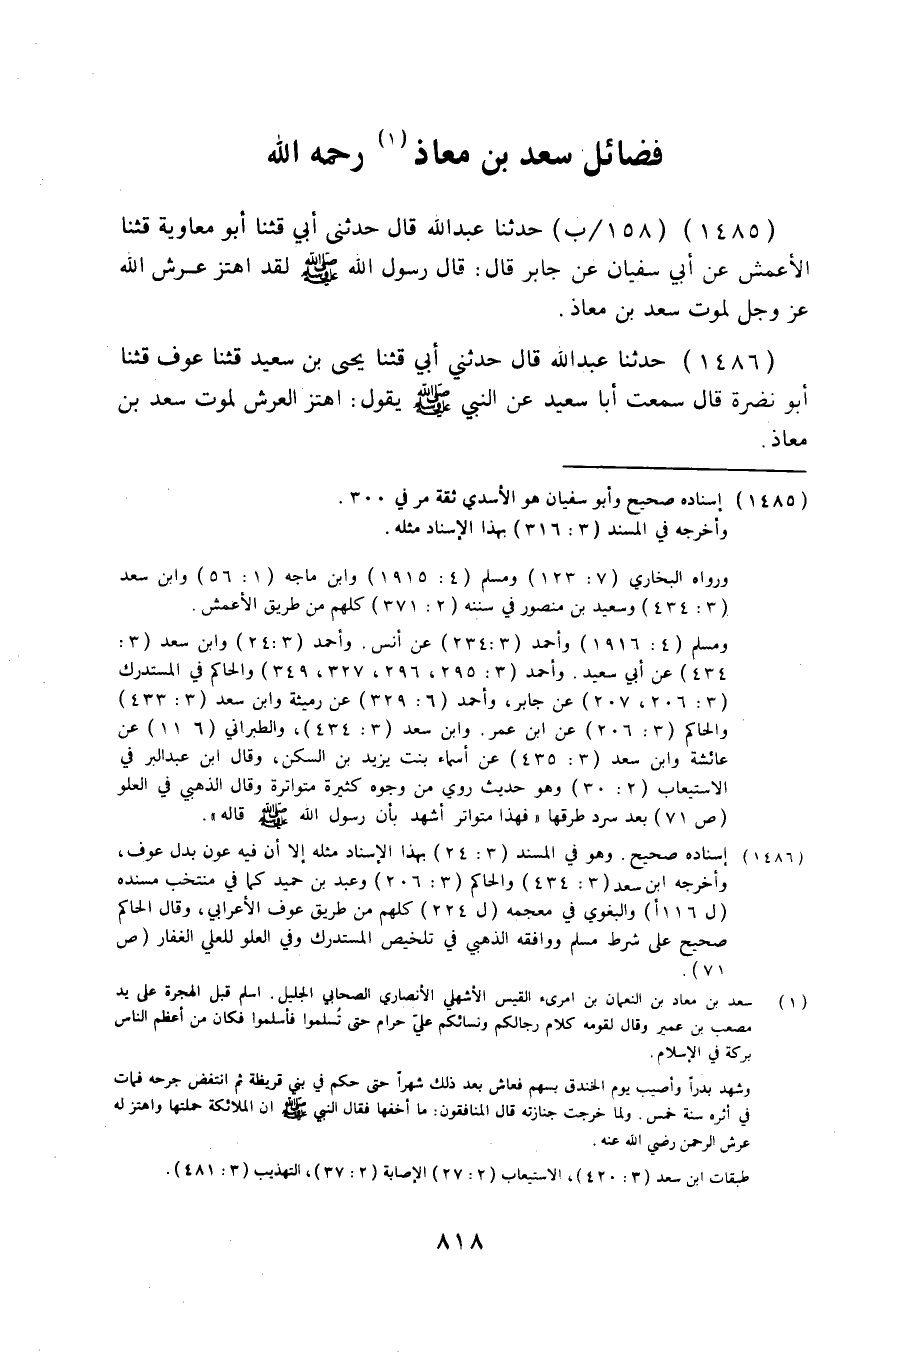 فضائل سعد بن معاذ (١) رحمه الله
(١٤٨٥) (١٥٨/ب) حدثنا عبدالله قال حدثني أبي قثنا أبو معاوية قثنا
الأعمش عن أبي سفيان عن جابر قال: قال رسول الله ﷺ لقد اهتز عرش الله
عز وجل لموت سعد بن معاذ.
(١٤٨٦) حدثنا عبدالله قال حدثني أبي قثنا يحيى بن سعيد قثنا عوف قثنا
أبو نضرة قال سمعت أبا سعيد عن النبي ﷺ يقول: اهتز العرش لموت سعد بن
معاذ.
(١٤٨٥) إسناده صحيح وأبو سفيان هو الأسدي ثقة مر في ٣٠٠.
وأخرجه في المسند (٣: ٣١٦) بهذا الإسناد مثله.
ورواه البخاري (٧: ١٢٣) ومسلم (٤: ١٩١٥) وابن ماجه (١: ٥٦) وابن سعد
(٣: ٤٣٤) وسعيد بن منصور في سننه (٢: ٣٧١) كلهم من طريق الأعمش.
ومسلم (٤: ١٩١٦) وأحمد (٣:٢٣٤) عن أنس. وأحمد (٣:٢٤) وابن سعد (٣:
٤٣٤) عن أبي سعيد. وأحمد (٣: ٢٩٥، ٢٩٦، ٣٢٧، ٣٤٩) والحاكم في المستدرك
(٣: ٢٠٦، ٢٠٧) عن جابر، وأحمد (٦: ٣٢٩) عن رميثة وابن سعد (٣: ٤٣٣)
والحاكم (٣: ٢٠٦) عن ابن عمر. وابن سعد (٣: ٤٣٤)، والطبراني (٦ ١١) عن
عائشة وابن سعد (٣: ٤٣٥) عن أسماء بنت يزيد بن السكن، وقال ابن عبدالبر في
الاستيعاب (٢: ٣٠) وهو حديث روي من وجوه كثيرة متواترة وقال الذهبي في العلو
(ص ٧١) بعد سرد طرقها «فهذا متواتر أشهد بأن رسول الله ﷺ قاله».
(١٤٨٦) إسناده صحيح. وهو في المسند (٣: ٢٤) بهذا الإسناد مثله إلا أن فيه عون بدل عوف،
وأخرجه ابن سعد(٣: ٤٣٤) والحاكم (٣: ٢٠٦) وعبد بن حميد كما في منتخب مسنده
(ل ١١٦أ) والبغوي في معجمه (ل ٢٢٤) كلهم من طريق عوف الأعرابي، وقال الحاكم
صحيح على شرط مسلم ووافقه الذهبي في تلخيص المستدرك وفي العلو للعلي الغفار (ص
٧١).
(١) سعد بن معاذ بن النعمان بن امرىء القيس الأشهلي الأنصاري الصحابي الجليل. اسلم قبل الهجرة على يد
مصعب بن عمير وقال لقومه كلام رجالكم ونسائكم عليّ حرام حتى تُسلموا فأسلموا فكان من أعظم الناس
بركة في الإسلام.
وشهد بدراً وأصيب يوم الخندق بسهم فعاش بعد ذلك شهراً حتى حكم في بني قريظة ثم انتفض جرحه فمات
في أثره سنة خمس. ولما خرجت جنازته قال المنافقون: ما أخفها فقال النبي ﷺ ان الملائكة حملتها واهتز له
عرش الرحمن رضي الله عنه.
طبقات ابن سعد (٣: ٤٢٠)، الاستيعاب (٢: ٢٧) الإصابة (٢: ٣٧)، التهذيب (٣: ٤٨١).
٨١٨